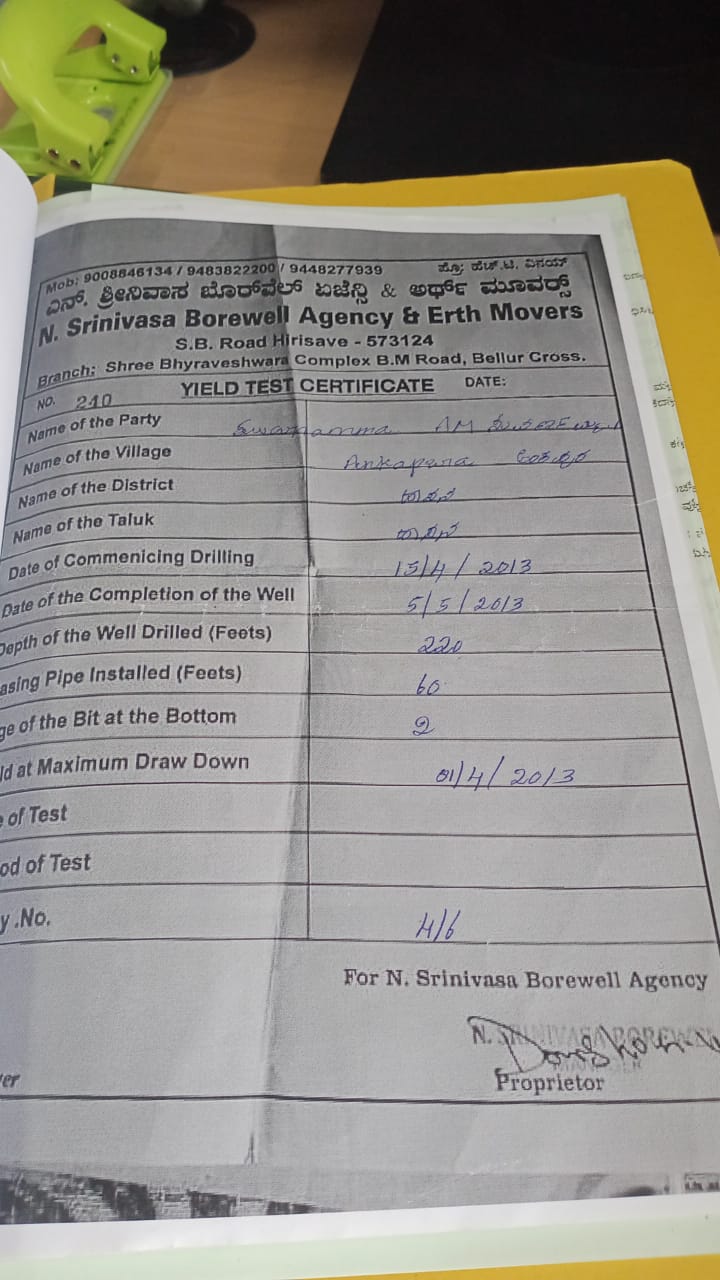 Mob: 9008846134 / 9483822200 / 9448277939 ಪ್ರೊ: ಹೆಚ್.ಟಿ. ವಿನಯ್
ಎನ್. ಶ್ರೀನಿವಾಸ ಬೋರ್‌ವೆಲ್ ಏಜೆನ್ಸಿ & ಅರ್ಥ್ ಮೂವರ್ಸ್
N. Srinivasa Borewell Agency & Erth Movers
S.B. Road Hirisave - 573124
Branch: Shree Bhyraveshwara Complex B.M Road, Bellur Cross.
NO. 210 YIELD TEST CERTIFICATE DATE:
Name of the Party
Name of the Village Ankapura ಅಂಕಪುರ
Name of the District ಹಾಸನ
Name of the Taluk ಹಾಸನ
Date of Commenicing Drilling 15/4/2013
Date of the Completion of the Well 5/5/2013
Depth of the Well Drilled (Feets) 220
asing Pipe Installed (Feets) 60
ge of the Bit at the Bottom 2
ld at Maximum Draw Down 01/4/2013
of Test
od of Test
y .No. 4/6
For N. Srinivasa Borewell Agency
N. SRINIVASA BOREWELL
Proprietor
er